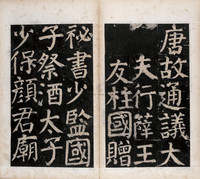 唐故通議大
夫行薛王
友柱國贈
祕書少監國
子祭酒太子
少保顏君廟